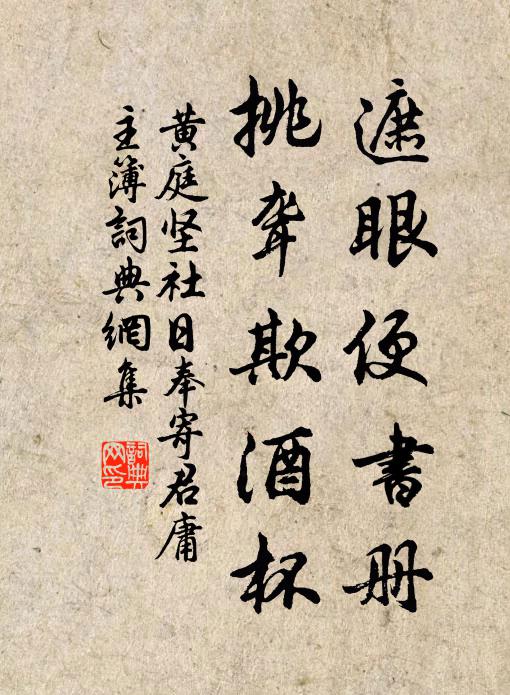 遮眼便書册
挑聋欺酒杯
黄庭坚社日奉寄君庸
主簿詞典網集
詞典
网印